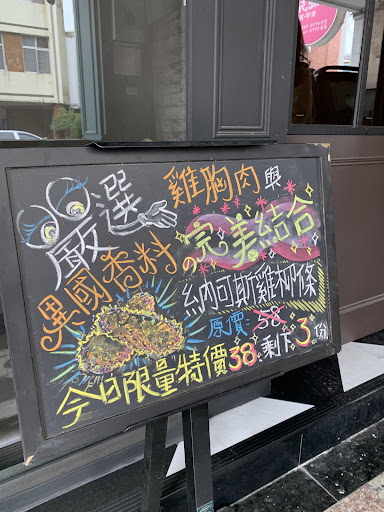 嚴選
雞胸肉與
異國香料の完美結合
納可斯雞柳條
原價58 剩下3份
今日限量特價38